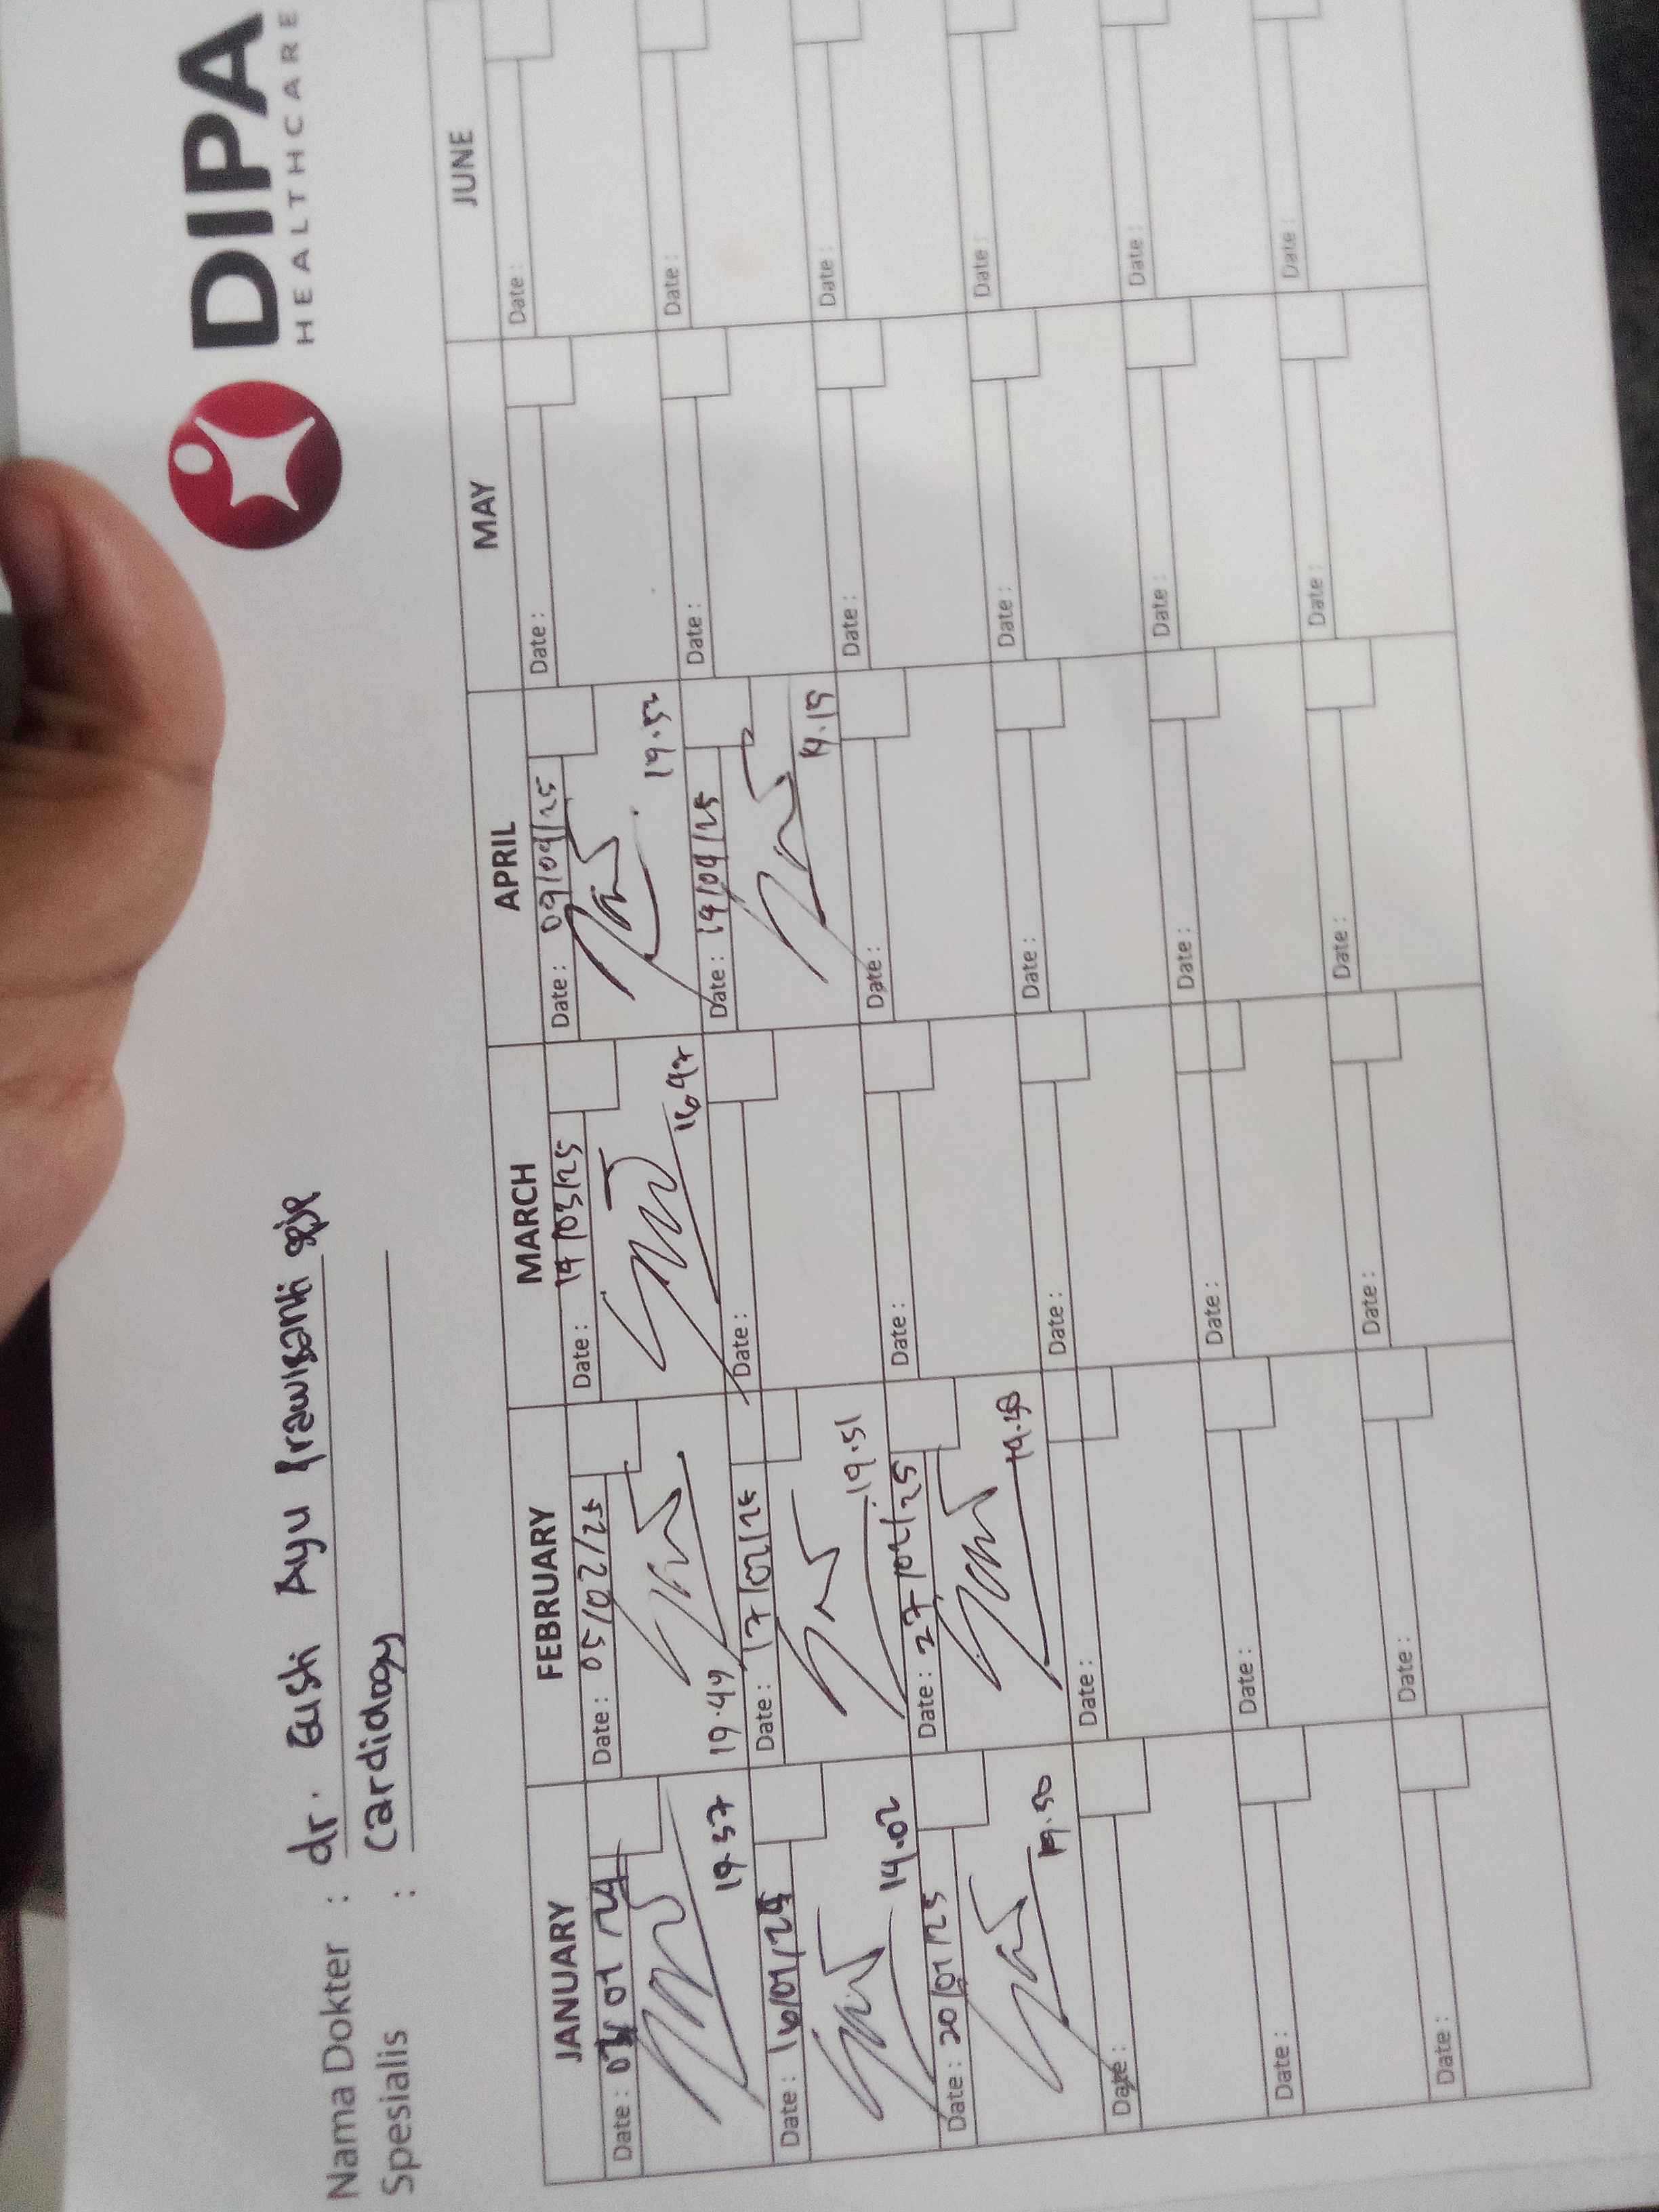 DIPA
HEALTHCARE
Nama Dokter : dr. Gusti Ayu
Spesialis : Cardiology
JANUARY FEBRUARY MARCH APRIL MAY JUNE
Date : 01/24 Date : 05/02/25 Date : 14/03/25 Date : 09/04/25 Date : Date :
19.37 19.49 16.47 19.52
Date : 16/01/25 Date : 17/02/25 Date : Date : 19/04/25 Date : Date :
14.02 19.51 14.15
Date : 20/01/25 Date : 27/02/25 Date : Date : Date : Date :
19.50 19.18
Date : Date : Date : Date : Date : Date :
Date : Date : Date : Date : Date : Date :
Date : Date : Date : Date : Date : Date :